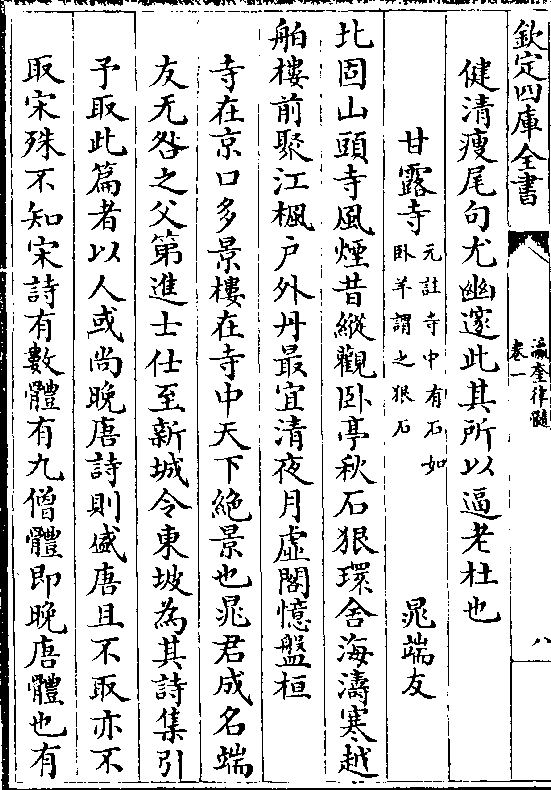 欽定四庫全書
瀛奎律髓
卷一
八
健清瘦尾句尤幽邃此其所以逼老杜也
甘露寺
元註寺中有石如
卧羊謂之狠石
晁端友
北固山頭寺風煙昔縱觀卧亭秋石狠環舍海濤寒越
舶樓前聚江楓戶外丹最宜清夜月虛閣憶盤桓
寺在京口多景樓在寺中天下絶景也晁君成名端
友无咎之父第進士仕至新城令東坡為其詩集引
予取此篇者以人或尚晚唐詩則盛唐且不取亦不
取宋殊不知宋詩有數體有九僧體即晚唐體也有